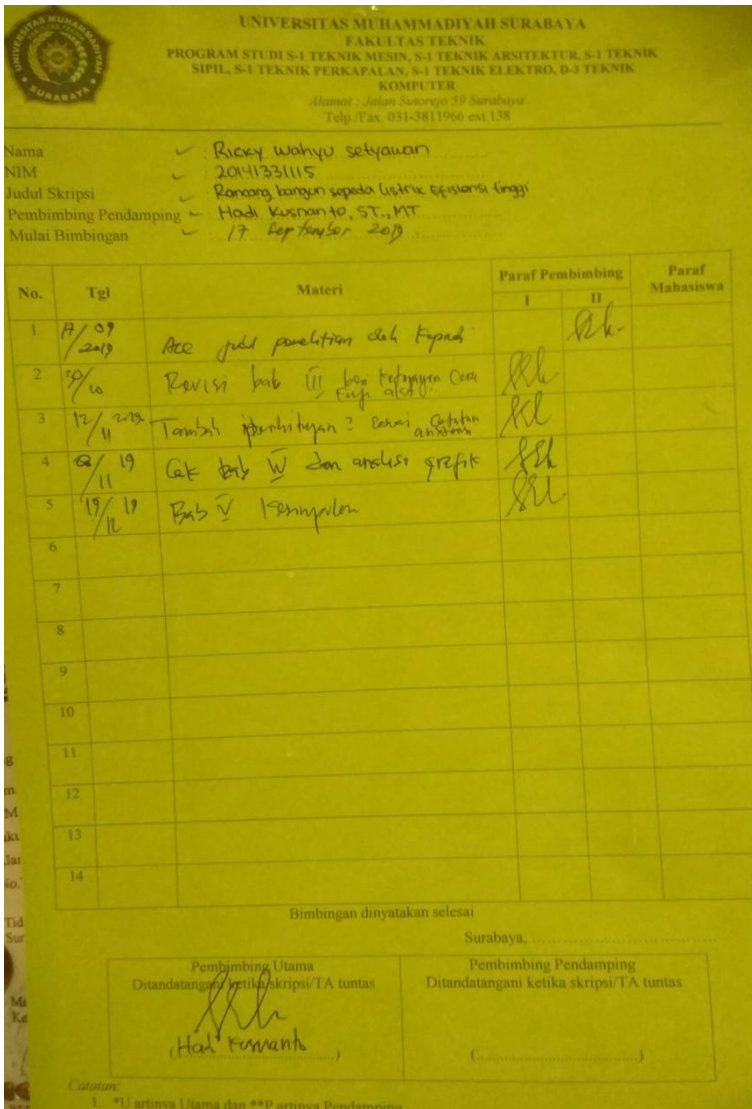 UNIVERSITAS MUHAMMADIYAH SURABAYA
FAKULTAS TEKNIK
PROGRAM STUDI S-1 TEKNIK MESIN, S-1 TEKNIK ARSITEKTUR, S-1 TEKNIK
SIPIL, S-1 TEKNIK PERKAPALAN, S-1 TEKNIK ELEKTRO, D-3 TEKNIK
KOMPUTER
Alamat : Jalan Sutorejo 59 Surabaya
Telp./Fax. 031-3811966 ext.138
Nama Ricky wahyu setyawan
NIM 20141331115
Judul Skripsi Rancang bangun sepeda listrik Efisiensi tinggi
Pembimbing Pendamping Hadi Kusnanto, ST., MT
Mulai Bimbingan 17 September 2019
No. Tgl Materi Paraf Pembimbing Paraf Mahasiswa
I II
1 17/09 2019 Acc judul penelitian
2 30/10 Revisi bab III
3 12/11 2019 Tambah
4 19/11 Cek bab IV dan analisi grafik
5 19/12 19 Bab V Kesimpulan
6
7
8
9
10
11
12
13
14
Bimbingan dinyatakan selesai
Surabaya,
Pembimbing Utama
Ditandatangani ketika skripsi/TA tuntas
Pembimbing Pendamping
Ditandatangani ketika skripsi/TA tuntas
(Hadi Kusnanto)
(....................)
Catatan:
1. *U artinya Utama dan **P artinya Pendamping